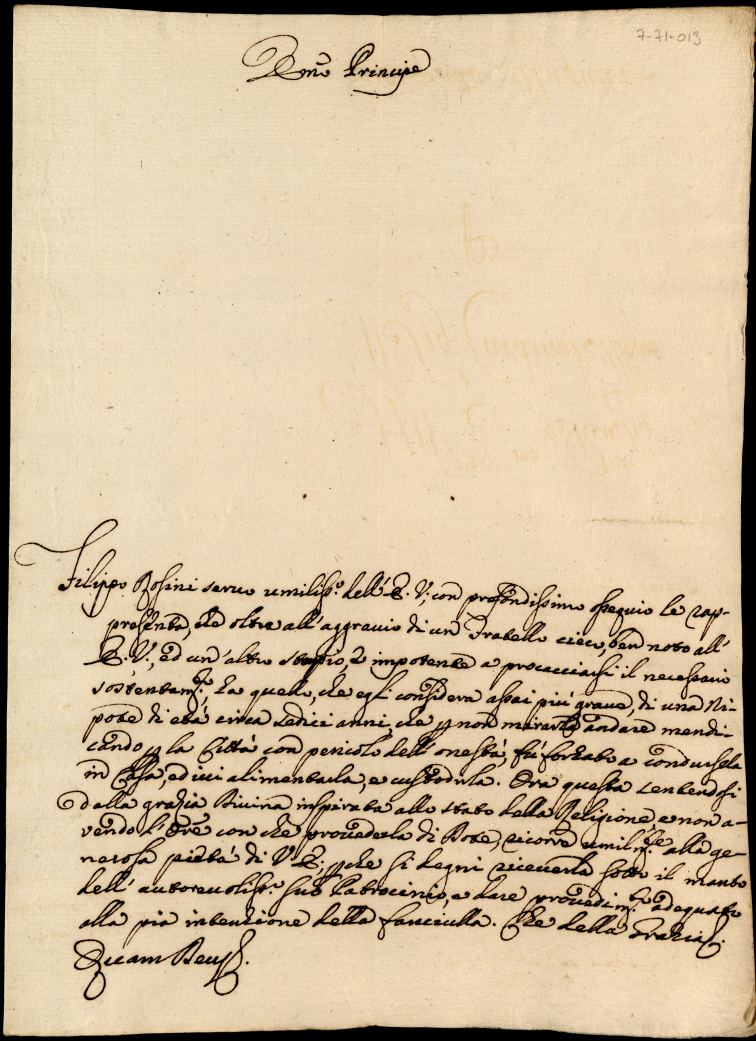 7-71-013
Emo Principe
Filippo Rosini servo umiliss.º dell'E. V., con profondissimo ossequio le rap-
presenta, che oltre all'aggravio di un Fratello cieco, ben noto all'
E. V., ed un'altro storpio, e impotente a procacciarsi il necessario
sostentam.to, ha quello, che egli considera assai più grave, di una Ni-
pote di età circa sedici anni, che p non mirarla andare mendi-
cando p la Città con pericolo dell'onestà, fù forzato a condursela
in Casa, ed ivi alimentarla, e custodirla. Ora questa sentendosi
dalla grazia Divina inspirata allo stato della Religione, e non a-
vendo l'Ore con che provederla di Dote, ricorre umilm.te alla ge-
nerosa pietà di V. E., p che si degni riceverla sotto il manto
dell'autorevoliss.º suo Patrocinio, e dare provedim.to adequato
alla pia intenzione della fanciulla. Che della Grazia
Quam Deus